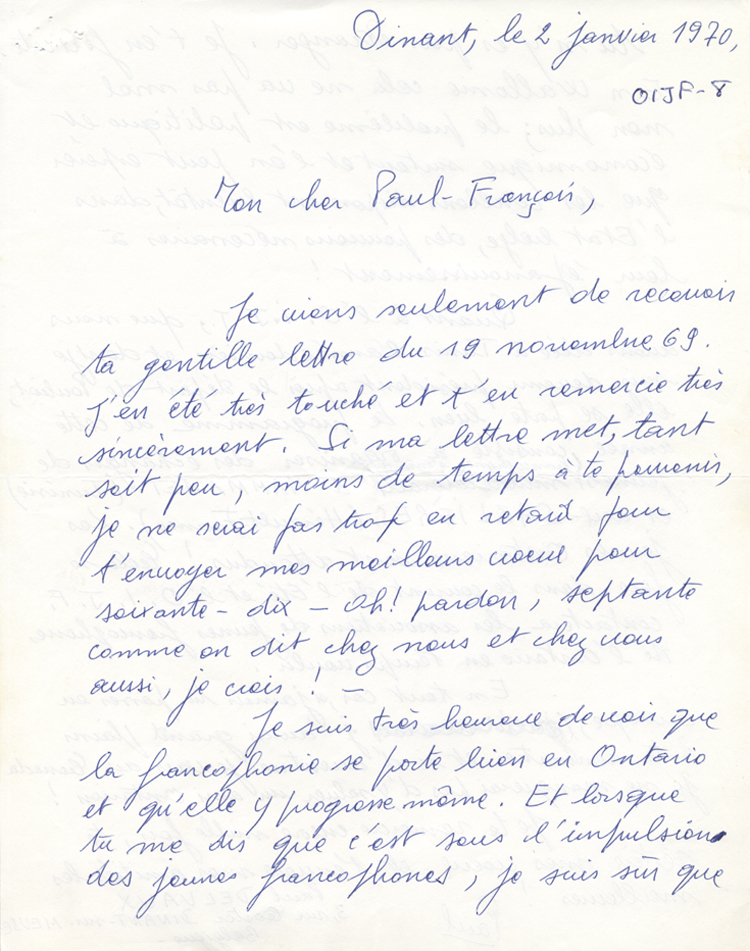 Dinant, le 2 janvier 1970,
OIJF-8
Mon cher Paul-François,
Je viens seulement de recevoir
ta gentille lettre du 19 novembre 69.
J'en été très touché et t'en remercie très
sincèrement. Si ma lettre met, tant
soit peu, moins de temps à te parvenir,
je ne serai pas trop en retard pour
t'envoyer mes meilleurs vœux pour
soixante-dix - Oh! pardon, septante
comme on dit chez nous et chez vous
aussi, je crois! -
Je suis très heureux de voir que
la francophonie se porte bien en Ontario
et qu'elle y progresse même. Et lorsque
tu me dis que c'est sous l'impulsion
des jeunes francophones, je suis sûr que